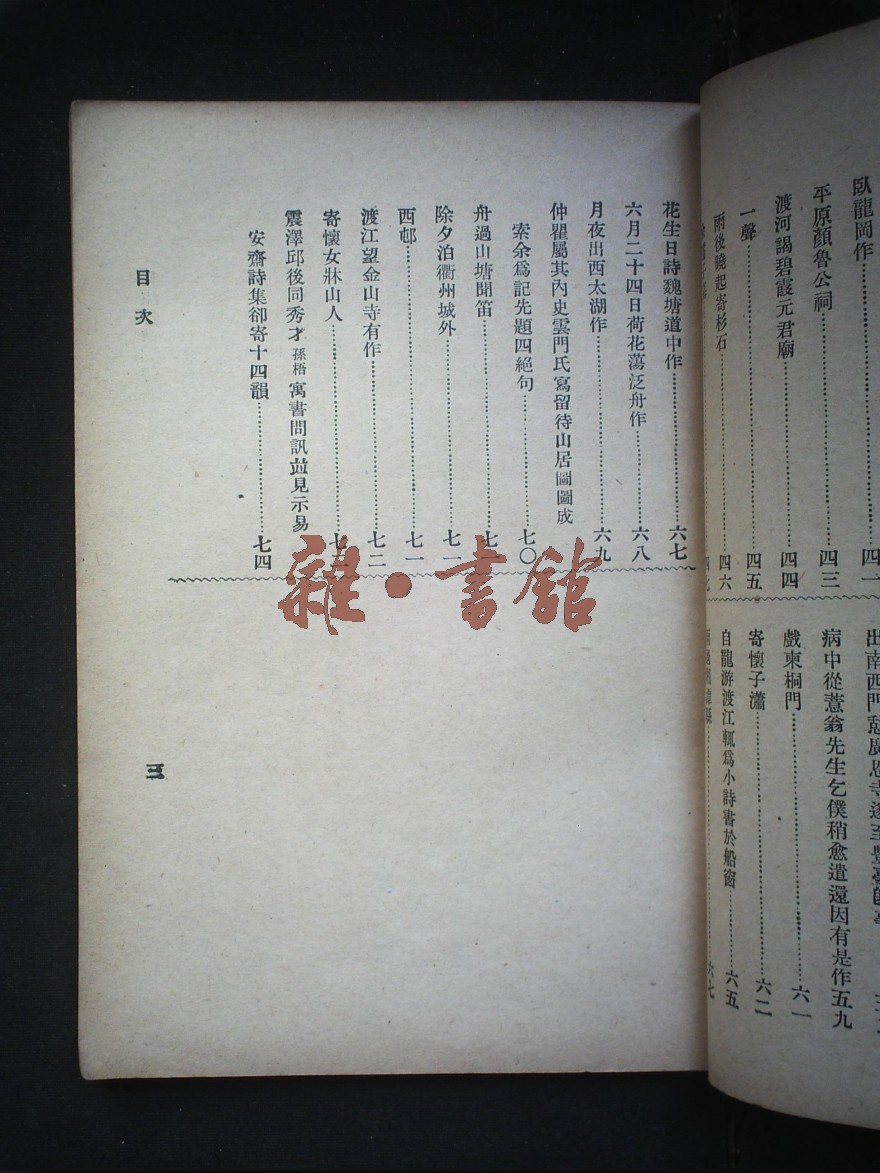 臥龍岡作……四一
平原顏魯公祠……四三
渡河謁碧霞元君廟……四四
一聲……四五
雨後曉起寄杉石……四六
出南西門憩廣恩寺遂至豐臺
病中從薏翁先生乞僕稍愈遣還因有是作五九
戲柬桐門……六一
寄懷子瀟……六二
自龍游渡江輒爲小詩書於船窗……六五
六七
花生日詩魏塘道中作……六七
六月二十四日荷花蕩泛舟作……六八
月夜出西太湖作……六九
仲瞿屬其內史雲門氏寫留待山居圖圖成
索余爲記先題四絕句……七〇
舟過山塘聞笛……七一
除夕泊衢州城外……七一
西邨……七一
渡江望金山寺有作……七二
寄懷女牀山人……七三
震澤邱後同秀才孫梧寓書問訊竝見示易
安齋詩集卻寄十四韻……七四
目次
三
雜·書館